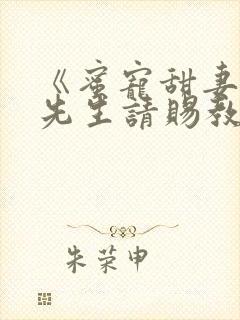 《蜜寵甜妻
先生請賜教
朱荣申